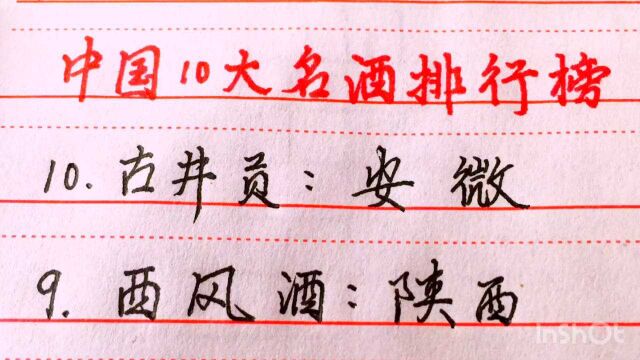 中国10大名酒排行榜
10.古井贡：安微
9.西风酒：陕西
InShot